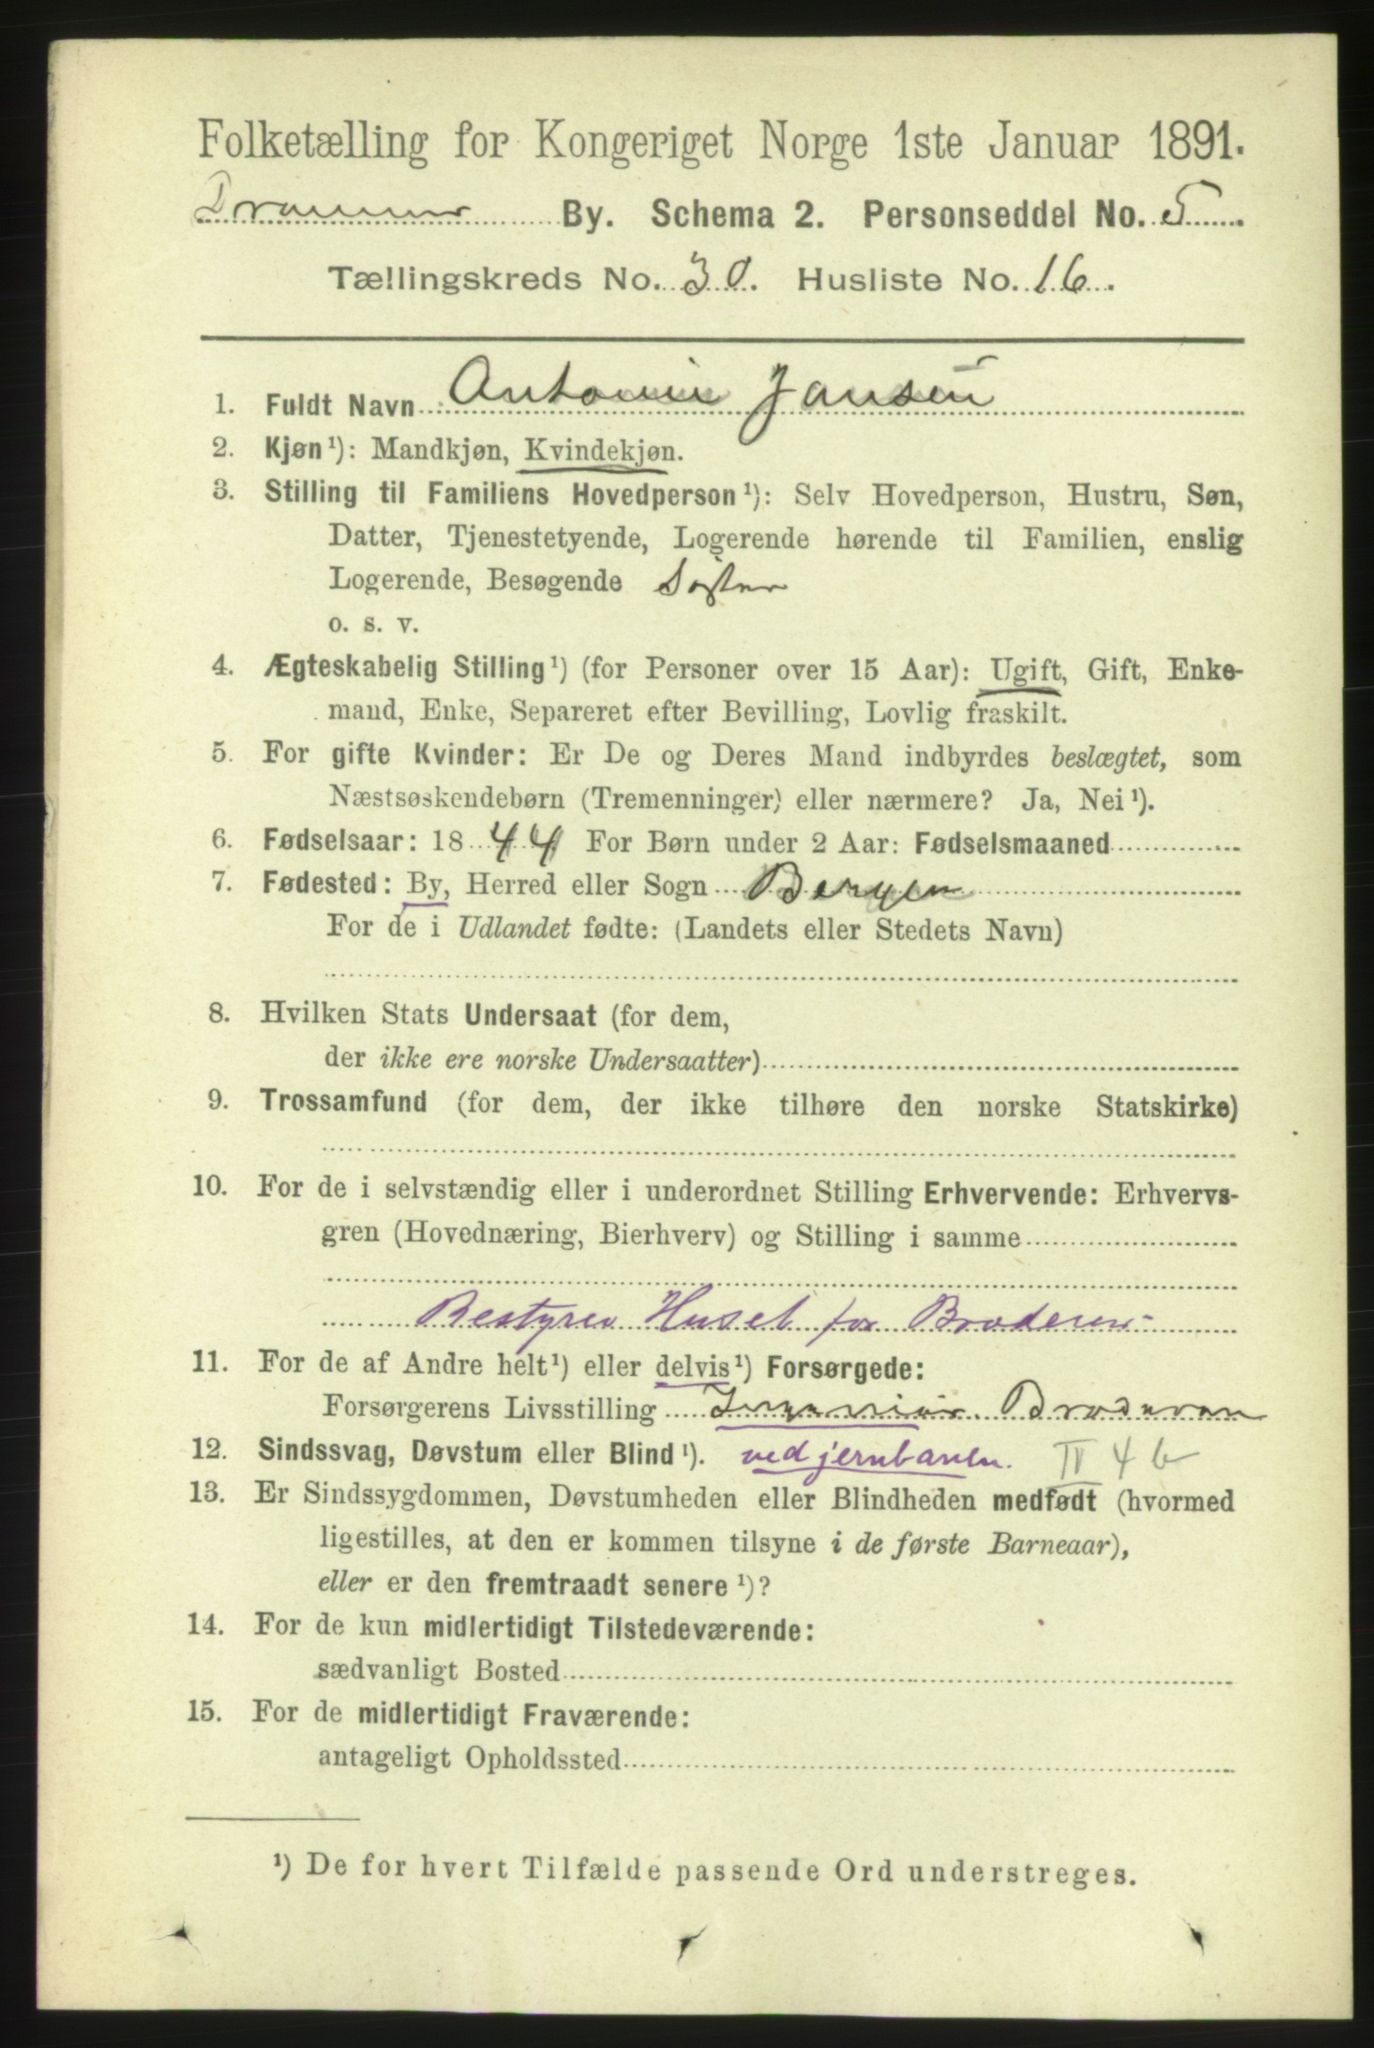 Folketælling for Kongeriget Norge 1ste Januar 1891.
Drammen By. Schema 2. Personseddel No. 5
Tællingskreds No. 30. Husliste No. 16.
1. Fuldt Navn Antonie Jansen
2. Kjøn¹): Mandkjøn, Kvindekjøn.
3. Stilling til Familiens Hovedperson¹): Selv Hovedperson, Hustru, Søn,
Datter, Tjenestetyende, Logerende hørende til Familien, enslig
Logerende, Besøgende Søster
o. s. v.
4. Ægteskabelig Stilling¹) (for Personer over 15 Aar): Ugift, Gift, Enke-
mand, Enke, Separeret efter Bevilling, Lovlig fraskilt.
5. For gifte Kvinder: Er De og Deres Mand indbyrdes beslægtet, som
Næstsøskendebørn (Tremenninger) eller nærmere? Ja, Nei¹).
6. Fødselsaar: 1844 For Børn under 2 Aar: Fødselsmaaned
7. Fødested: By, Herred eller Sogn Bergen
For de i Udlandet fødte: (Landets eller Stedets Navn)
8. Hvilken Stats Undersaat (for dem,
der ikke ere norske Undersaatter)
9. Trossamfund (for dem, der ikke tilhøre den norske Statskirke)
10. For de i selvstændig eller i underordnet Stilling Erhvervende: Erhvervs-
gren (Hovednæring, Bierhverv) og Stilling i samme
Bestyrer Huset for Broderen
11. For de af Andre helt¹) eller delvis¹) Forsørgede:
Forsørgerens Livsstilling Ingeniør. Broderen
12. Sindssvag, Døvstum eller Blind¹). ved jernbanen. IV 4 b
13. Er Sindssygdommen, Døvstumheden eller Blindheden medfødt (hvormed
ligestilles, at den er kommen tilsyne i de første Barneaar),
eller er den fremtraadt senere¹)?
14. For de kun midlertidigt Tilstedeværende:
sædvanligt Bosted
15. For de midlertidigt Fraværende:
antageligt Opholdssted
¹) De for hvert Tilfælde passende Ord understreges.